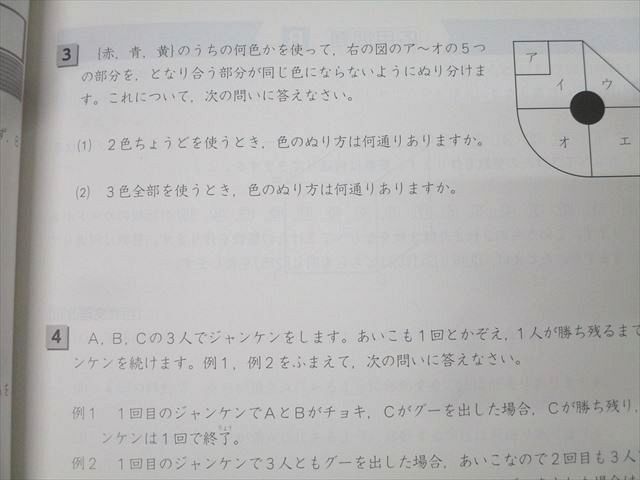 3 {赤,青,黄}のうちの何色かを使って,右の図のア〜オの5つ
の部分を,となり合う部分が同じ色にならないようにぬり分けま
す。これについて,次の問いに答えなさい。
ア
イ
ウ
オ
エ
(1) 2色ちょうどを使うとき,色のぬり方は何通りありますか。
(2) 3色全部を使うとき,色のぬり方は何通りありますか。
4 A,B,Cの3人でジャンケンをします。あいこも1回とかぞえ,1人が勝ち残るまで
ンケンを続けます。例1,例2をふまえて,次の問いに答えなさい。
例1 1回目のジャンケンでAとBがチョキ,Cがグーを出した場合,Cが勝ち残り,
ンケンは1回で終了。
りょう
例2 1回目のジャンケンで3人ともグーを出した場合,あいこなので2回目も3人で